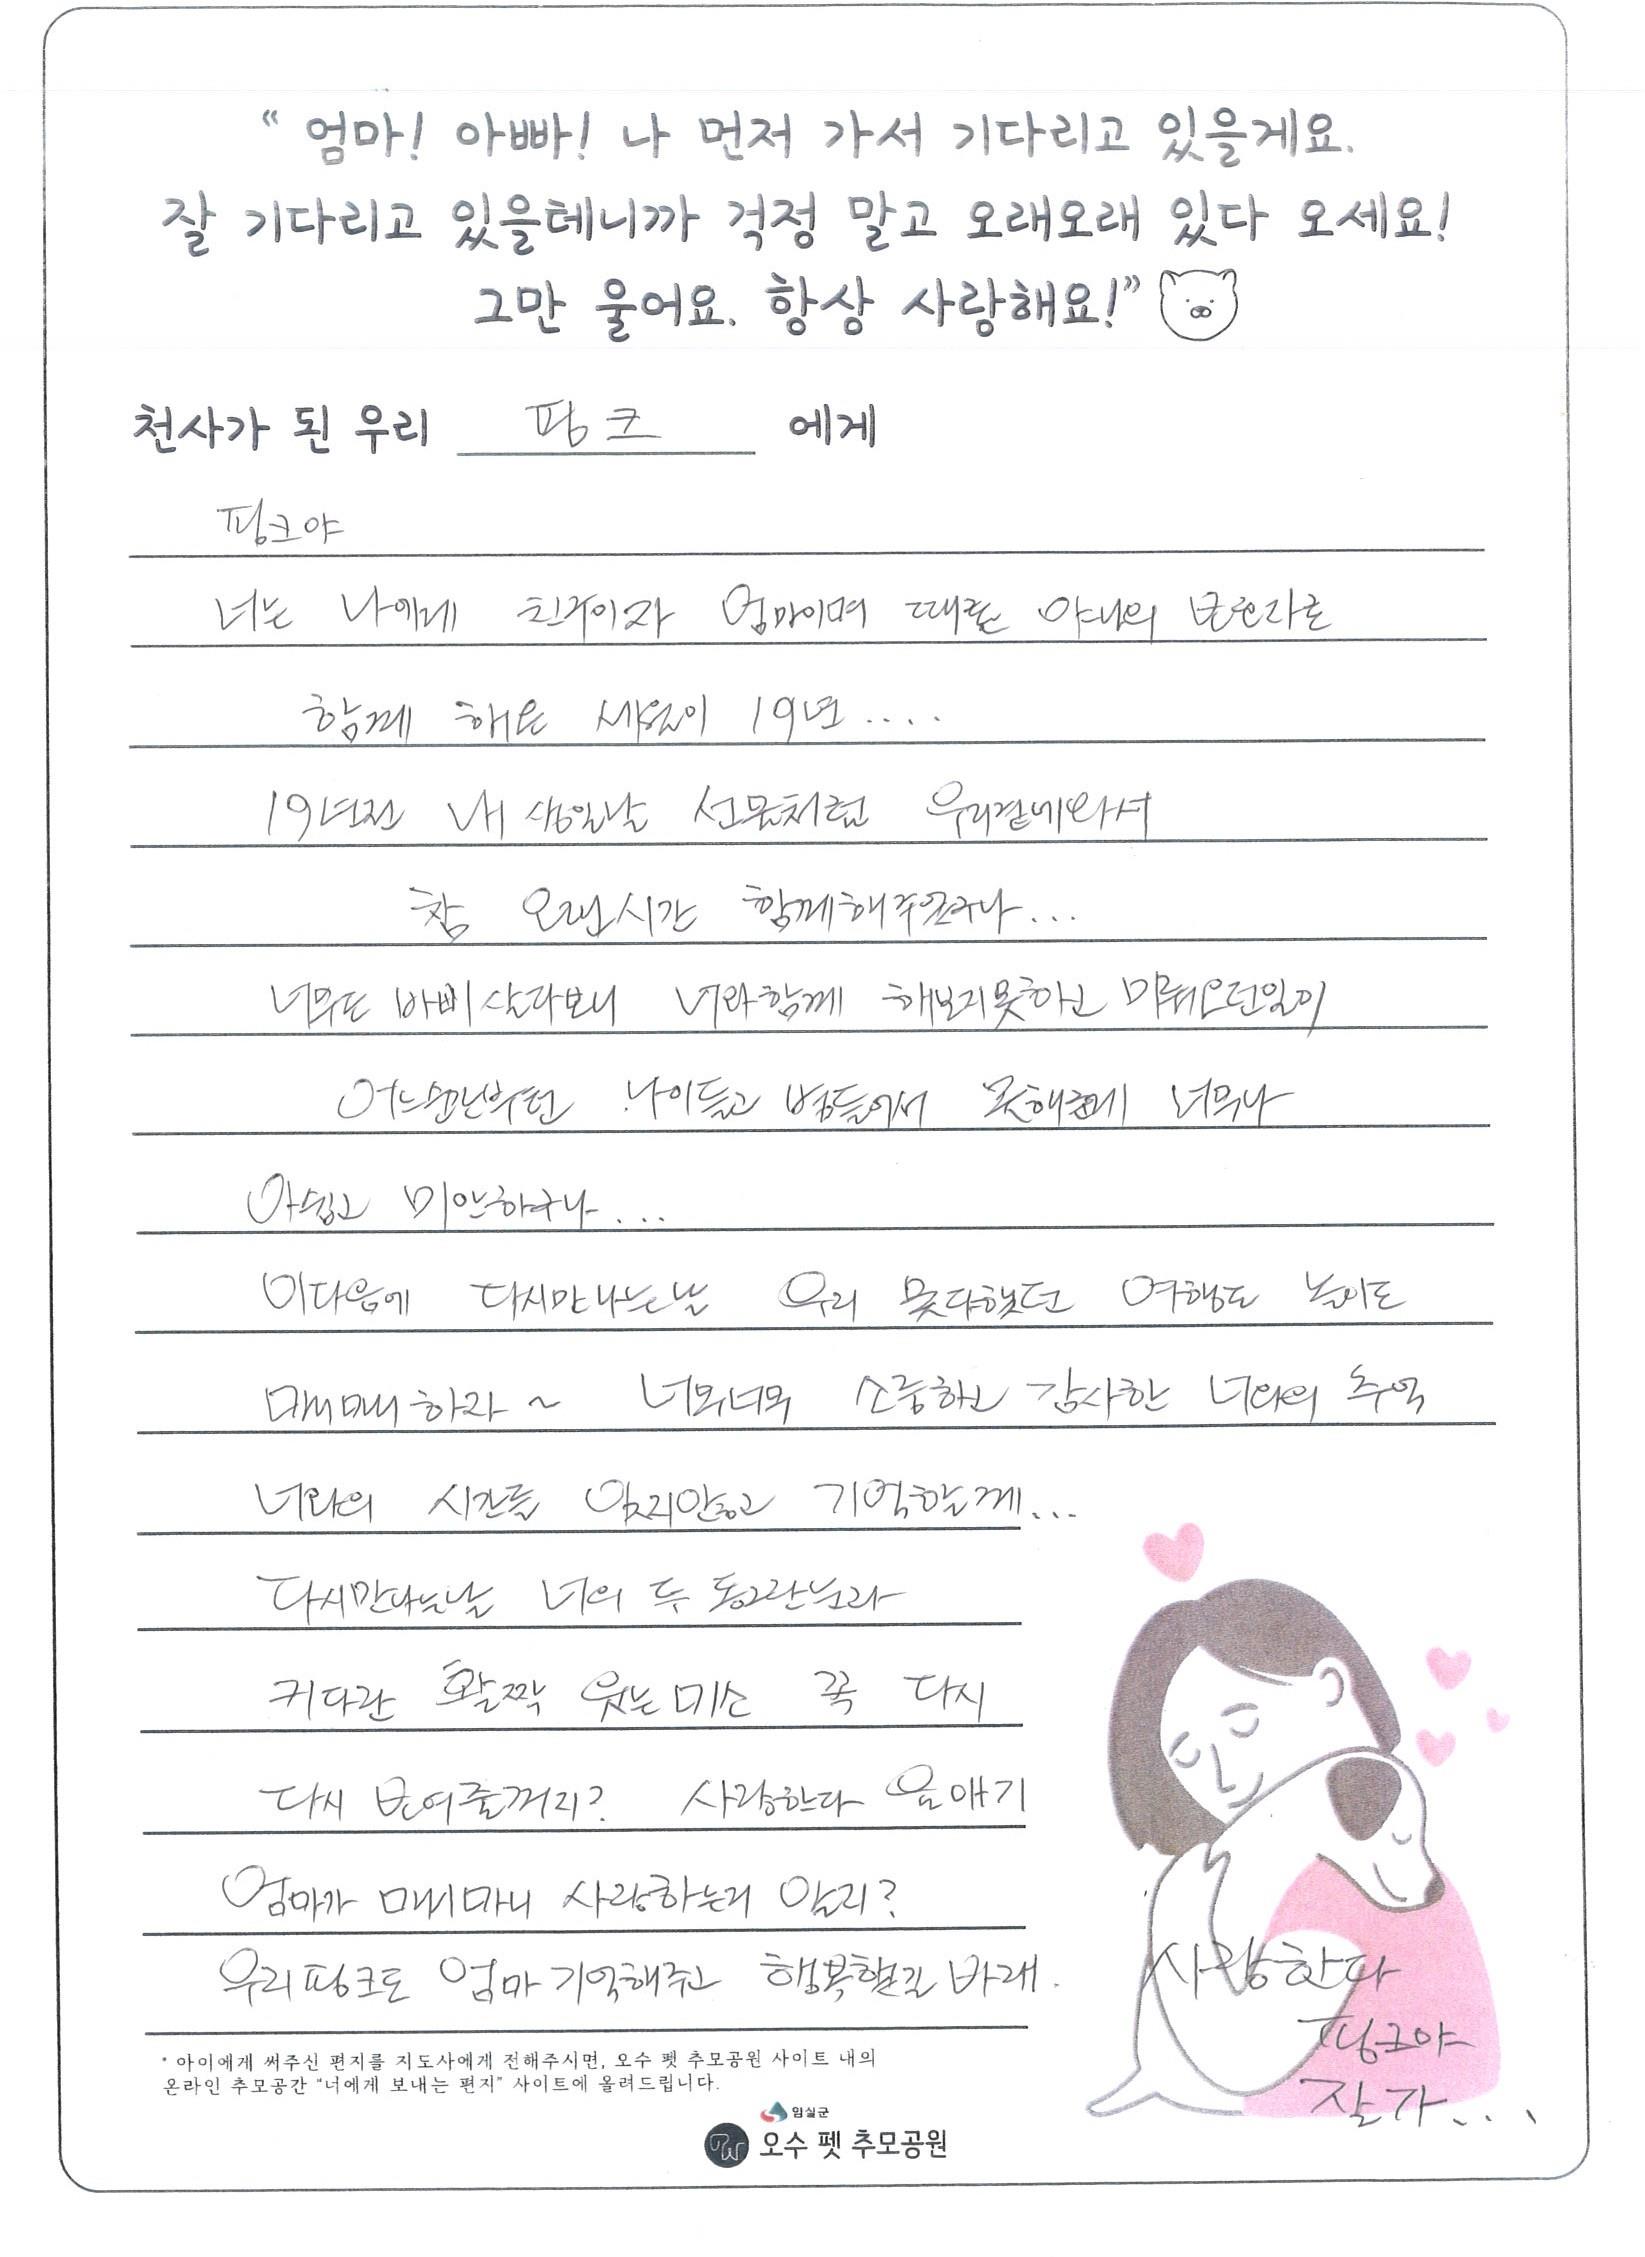 “ 엄마! 아빠! 나 먼저 가서 기다리고 있을게요.
잘 기다리고 있을테니까 걱정 말고 오래오래 있다 오세요!
그만 울어요. 항상 사랑해요!”
천사가 된 우리 핑크 에게
핑크야
너는 나에게 친구이자 엄마이며 때론 보호자로
함께 해온 세월이 19년....
19년전 내 생일날 선물처럼 우리곁에와서
참 오랜시간 함께해주었구나...
너무도 바삐살다보니 너와함께 해보지못하고 미뤄오던일이
어느순간부턴 나이들고 병들어서 못해준게 너무나
아쉽고 미안하구나...
이다음에 다시만나는날 우리 못다했던 여행도 놀이도
매매하자 ~ 너무너무 소중하고 감사한 너와의 추억
너와의 시간들 잊지않고 기억할께...
다시만나는날 너의 두 동그란눈과
커다란 활짝 웃는미소 꼭 다시
다시 보여줄꺼지? 사랑한다 울애기
엄마가 사랑하는거 알지?
우리핑크도 엄마 기억해주고 행복했길 바래.
사랑한다
핑크야
잘가...
* 아이에게 써주신 편지를 지도사에게 전해주시면, 오수 펫 추모공원 사이트 내의
온라인 추모공간 “너에게 보내는 편지” 사이트에 올려드립니다.
임실군
오수 펫 추모공원